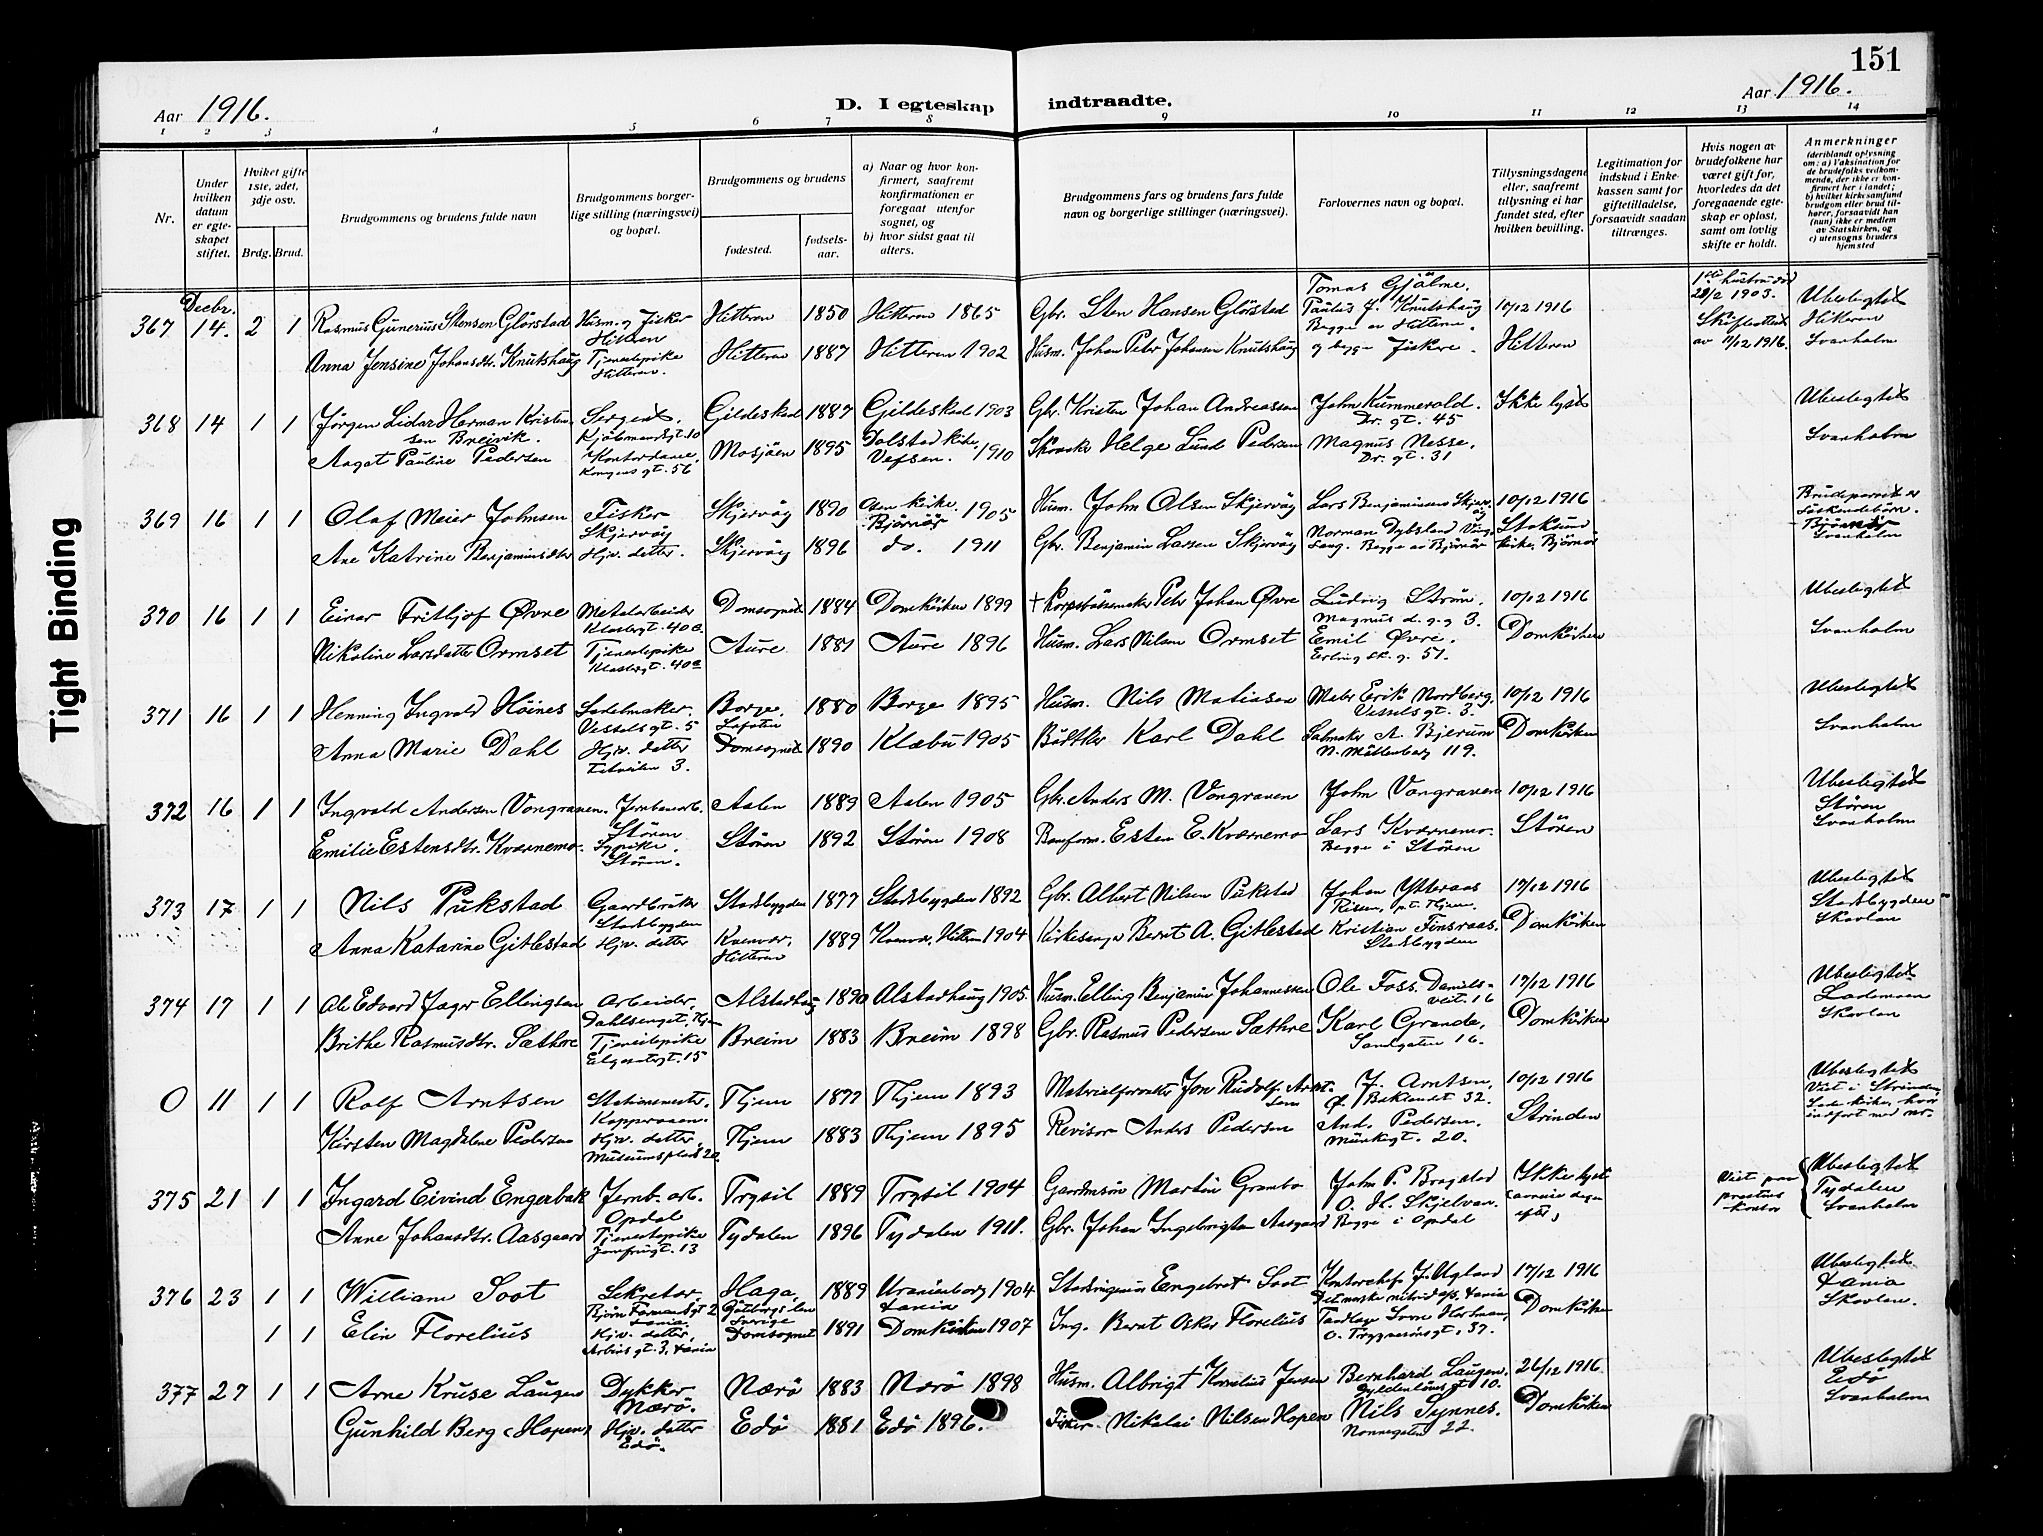 151
Aar 1916.
D. I egteskap indtraadte.
Aar 1916.
1 2 3 4 5 6 7 8 9 10 11 12 13 14
Nr.
Under hvilken datum er egteskapet stiftet.
Hvilket gifte 1ste, 2det, 3dje osv.
Brdg. Brud.
Brudgommens og brudens fulde navn
Brudgommens borgerlige stilling (næringsvei) og bopæl.
Brudgommens og brudens
fødested.
fødselsaar.
a) Naar og hvor konfirmert, saafremt konfirmationen er foregaat utenfor sognet, og
b) hvor sidst gaat til alters.
Brudgommens fars og brudens fars fulde navn og borgerlige stillinger (næringsvei).
Forlovernes navn og bopæl.
Tillysningsdagene eller, saafremt tillysning ei har fundet sted, efter hvilken bevilling.
Legitimation for indskud i Enkekassen samt for giftetilladelse, forsaavidt saadan tiltrænges.
Hvis nogen av brudefolkene har været gift før, hvorledes da det foregaaende egteskap er opløst, samt om lovlig skifte er holdt.
Anmerkninger
(deriblandt oplysning om: a) Vaksination for de brudefolks vedkommende, der ikke er konfirmert her i landet; b) hvilket kirkesamfund brudgom eller brud tilhører, forsaavidt han (hun) ikke er medlem av Statskirken, og c) utensogns bruders hjemsted
Tight Binding
Decbr.
367 14. 2 1 Rasmus Gunerius Stensen Glørstad Husm. og Fisker Hitteren Hitteren 1850 Hitteren 1865 Gbr. Sten Hansen Glørstad Tomas Gjälme, Paulus J. Knutshaug 10/12 1916 Ubeslegtet
Anna Jensine Johansdtr. Knutshaug Tjenestepike Hitteren. Hitteren 1887 Hitteren 1902 Husm. Johan Peter Johansen Knutshaug Begge av Hitteren og begge Fiskere. Hitteren av 11/12 1916. Hitteren Svanholm
368 14 1 1 Jørgen Lidar Herman Kristensen Breivik. Sergent, Gildeskaal 1887 Gildeskaal 1903 Gbr. Kristen Johan Andreassen John Kummerold. Dr. gt. 45 Ikke lyst Ubeslegtet
Aagot Pauline Pedersen Kontordame, Kongens gt. 56 Mosjøen 1895 Dolstad kirke, Vefsen. 1910 Helge Lund Pedersen Magnus Nesse, Dr. gt. 31 Svanholm
369 16 1 1 Olaf Meier Johnsen Fisker Skjervøy Skjervøy 1890 Osen kirke. Bjørnør 1905 Husm. John Olsen Skjervøy Lars Benjaminsen Skjervøy 10/12 1916 Brudeparret er Søskendebørn.
Ane Katrine Benjaminsdtr Hjv. datter. Skjervøy 1896 do. 1911 Gbr. Benjamin Larsen Skjervøy Norman Dybsland Begge av Bjørnør Stoksund kirke, Bjørnør Bjørnør Svanholm
370 16 1 1 Einar Fritljof Øvre Metalarbeider Klosbergt. 40a. Domsognet 1884 Domkirken 1899 + Peter Johan Øvre Ludvig Strøm, Magnus d. g. g 3. 10/12 1916 Ubeslegtet
Nikoline Larsdatter Ormset Tjenestepike Klosbergt. 40a Aure 1881 Aure 1896 Husm. Lars Nilsen Ormset Emil Øvre, Erling sk. g. 51. Domkirken Svanholm
371 16 1 1 Henning Ingvald Høines Sadelmaker. Vesselsgt. 5 Borge, Lofoten 1880 Borge 1895 Husm. Nils Matiasen Maler Erik Nordberg. Vesselsgt. 3. 10/12 1916 Ubeslegtet
Anna Marie Dahl Hjv. datter Domsognet 1890 Klæbu 1905 Bødtker Karl Dahl Salmaker A. Bjerum N. Møllenberg 119. Domkirken Svanholm
372 16 1 1 Ingvald Andersen Vongraven. Jernbanearb. Støren Aalen 1889 Aalen 1905 Gbr. Anders M. Vongraven John Vongraven 10/12 1916 Ubeslegtet
Emilie Estensdtr. Kværnemo. Sypike. Støren. Støren 1892 Støren 1908 Baneform. Esten E. Kværnemo Lars Kværnemo. Begge i Støren Støren Støren Svanholm
373 17 1 1 Nils Pukstad Gaardbruker Stadsbygden Stadsbygden 1877 Stadsbygden 1892 Gbr. Albert Nilsen Pukstad Johan Ytteraas Risen, p.t. Thjem. 17/12 1916 Ubeslegtet
Anna Katarina Gitlestad Hjv. datter Kvenvær, Hitteren 1889 Kvenvær, Hitteren 1904 Kirkesanger Bernt A. Gitlestad Kristian Finsraas. Stadsbygden Domkirken Stadsbygden Skavlan
374 17 1 1 Ole Edvard Jager Ellingsen Arbeider, Alstadhaug 1890 Alstadhaug 1905. Husm. Elling Benjamin Johannessen Ole Foss, Danielsveit. 16 17/12 1916 Ubeslegtet
Brithe Rasmusdtr. Sæthre Tjenestepike Elgesetergt. 15 Breim 1883 Breim 1898 Gbr. Rasmus Pedersen Sæthre Karl Grande, Sandgaten 16. Domkirken Lademoen Skavlan
0 11 1 1 Rolf Arntsen Stationsmester. Kopperaaen. Thjem 1877 Thjem 1893 Materialforvalter Jon Rudolf Arntsen J. Arntsen, Ø. Baklandet 32. 10/12 1916 Ubeslegtet
Kirsten Magdalene Pedersen Hjv. datter, Museumsplads 20. Thjem 1883 Thjem 1895 Revisor Anders Pedersen And. Pedersen. Munkegt. 20. Strinden Viet i Strinden, Lade kirke, hvor indført med nr.
375 21 1 1 Ingard Eivind Engerbak Jernb. arb. Opdal Trysil 1889 Trysil 1904 Gaardmsøn Martin Grambo John P. Bogstad Ikke lyst Viet paa prestens kontor Ubeslegtet
Anne Johansdtr. Aasgaard Tjenestepike Jomfrugt. 13 Tydalen 1896 Tydalen 1911. Gbr. Johan Ingebrigtsen Aasgaard O. H. Skjelvan. Begge i Opdal Tydalen Svanholm
376 23 1 1 William Soot Sekretær. Haga, Göteborgs len Sverige 1889 Uranienborg X.ania 1904 Stadsingeniør Engebret Soot Kontorchef J. Ugland 17/12 1916 Ubeslegtet
1 1 Elin Florelius Hjv. datter, Arbins gt. 3, X.ania Domsognet 1891 Domkirken 1907 Ing. Bernt Oskar Florelius Tandlæge Sven Hartman, O. Tryggvasøns gt. 37. Domkirken X.ania Skavlan.
377 27 1 1 Arne Kruse Laugen Dykker. Nærø. Nærø 1883 Nærø 1898 Husm. Albrigt Kornelius Jensen Bernhard Laugen. Gyldenløvesgt 10. 26/12 1916. Ubeslegtet
Gunhild Berg (Hopen) Hjv. datter Edø. Edø 1881 Edø 1896. Fisker. Nikolai Nilsen Hopen Nils Synnes. Nonnegaten 22. Domkirken Edø Svanholm